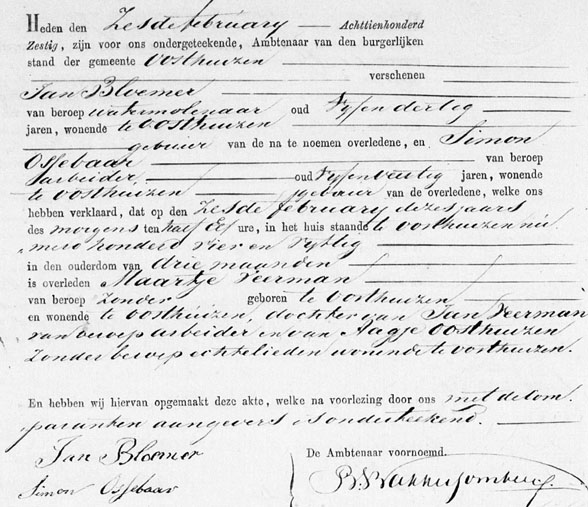 Heden den Zesde february Achttienhonderd
Zestig, zijn voor ons ondergeteekende, Ambtenaar van den burgerlijken
stand der gemeente Oosthuizen
verschenen
Jan Bloemer
van beroep watermolenaar oud vyf en dertig
jaren, wonende te Oosthuizen
gebuur van de na te noemen overledene, en Simon
Ossebaar van beroep
arbeider oud vyf en veertig jaren, wonende
te Oosthuizen gebuur van de overledene, welke ons
hebben verklaard, dat op den Zesde february dezes jaars
des morgens ten half elf ure, in het huis staande te Oosthuizen nu-
mero honderd vier en vyftig
in den ouderdom van drie maanden
is overleden Maartje Veerman
van beroep Zonder geboren te Oosthuizen
en wonende te Oosthuizen, dochter van Jan Veerman
van beroep arbeider en van Aagje Oosthuizen
Zonder beroep echtelieden wonende te Oosthuizen.
En hebben wij hiervan opgemaakt deze akte, welke na voorlezing door ons met de Com-
paranten aangevers is onderteekend.
Jan Bloemer
De Ambtenaar voornoemd.
Simon Ossebaar